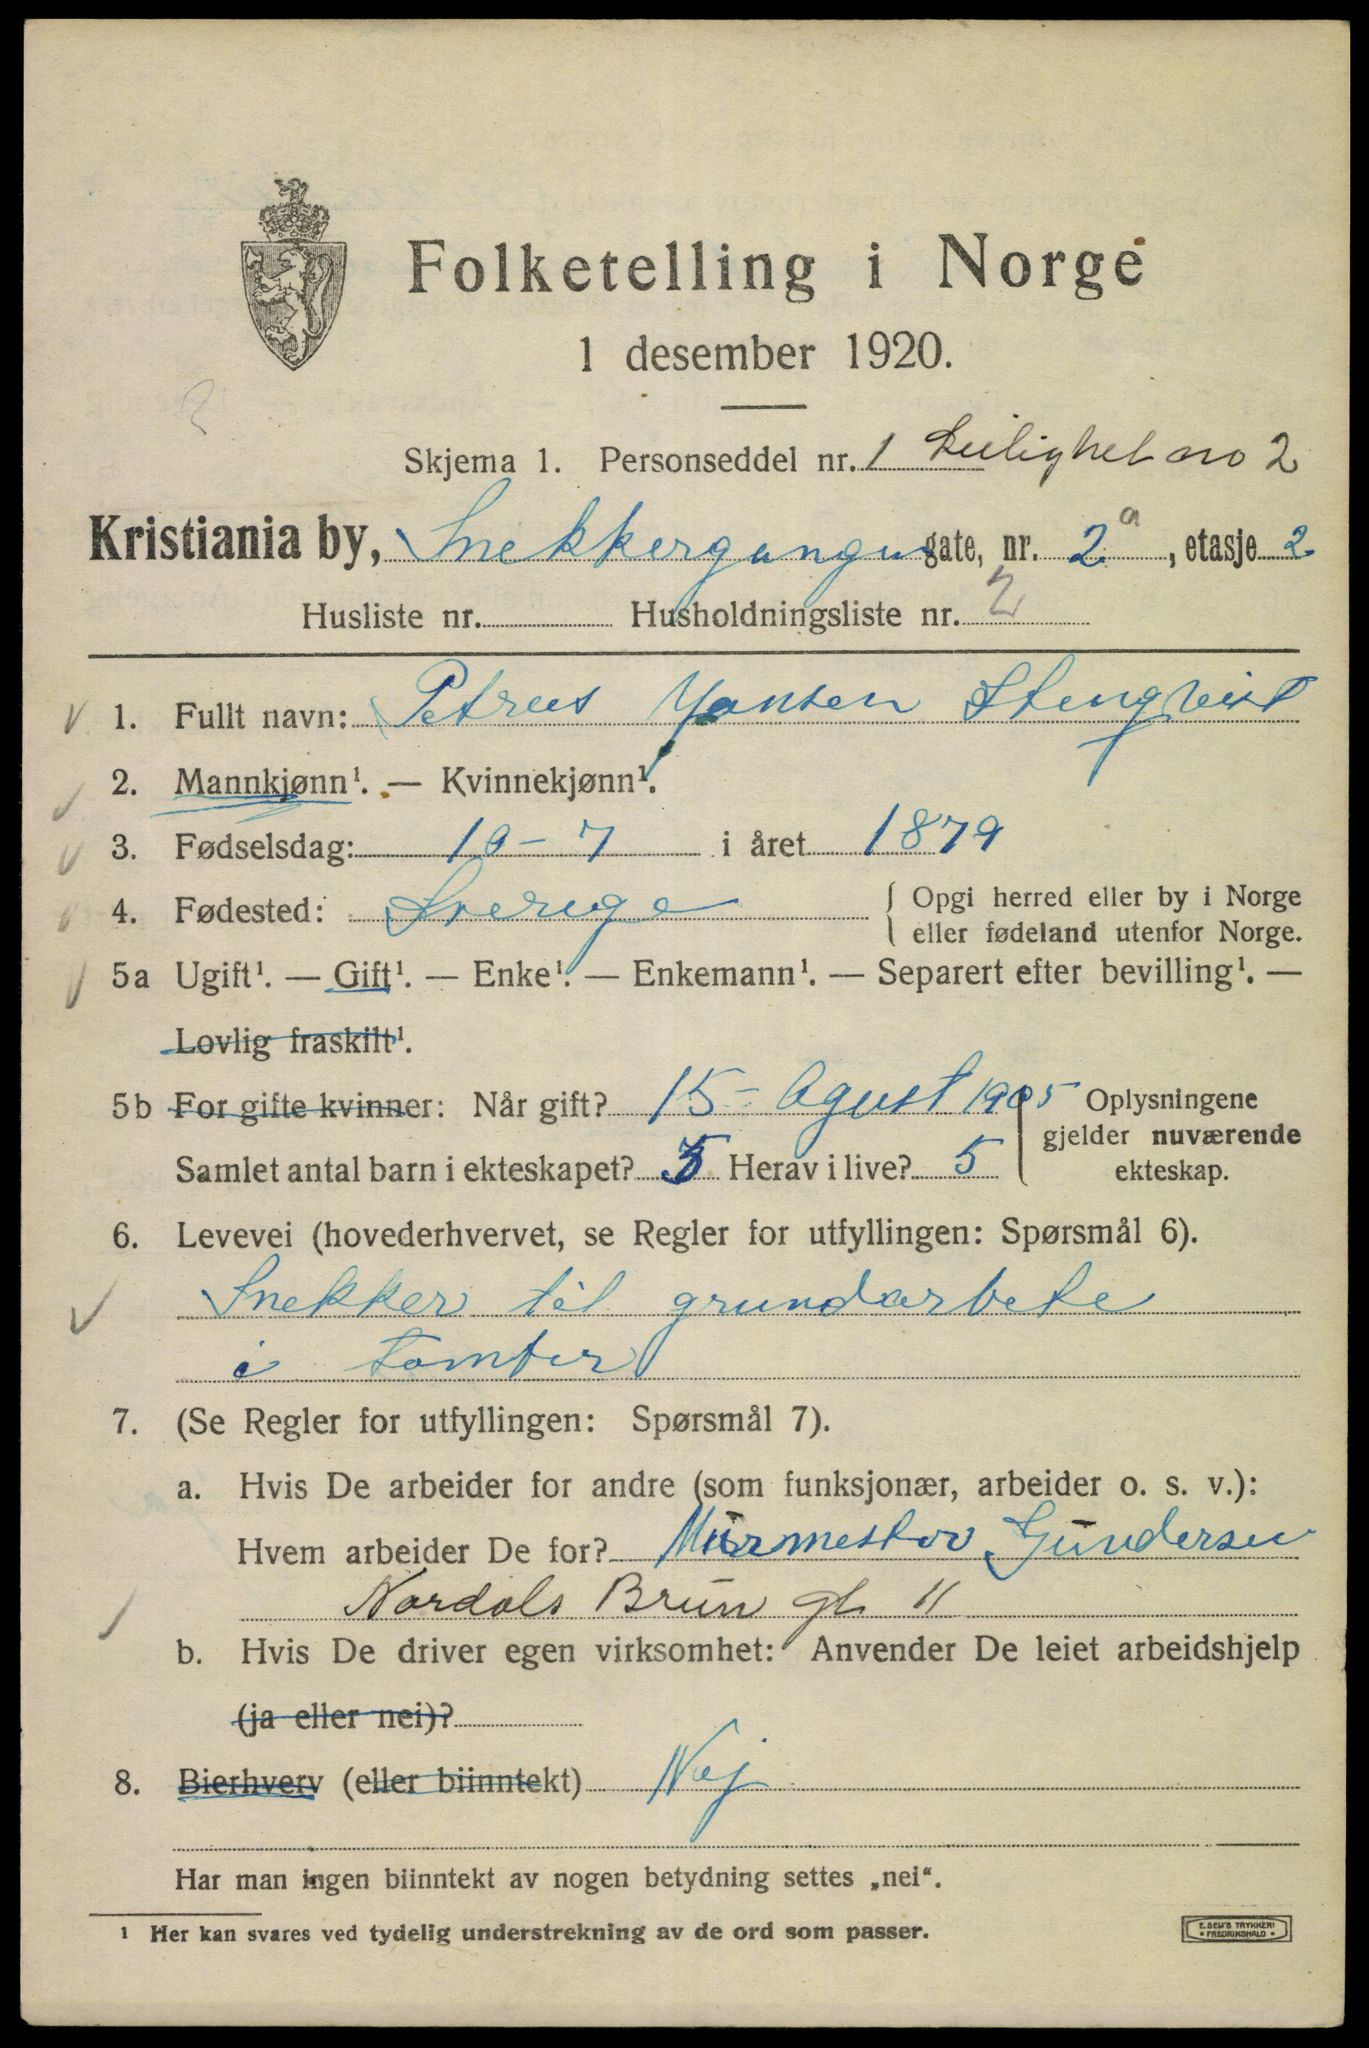 Folketelling i Norge
1 desember 1920.
Skjema 1. Personseddel nr. 1 Leilighet no 2
Kristiania by, Snekkergangen gate, nr. 2a, etasje 2
Husliste nr. Husholdningsliste nr. 2
1. Fullt navn: Petrus Jansen Stenqvist
2. Mannkjønn¹. — Kvinnekjønn¹.
3. Fødselsdag: 10-7 i året 1879
4. Fødested: Sverige { Opgi herred eller by i Norge
eller fødeland utenfor Norge.
5a Ugift¹. — Gift¹. — Enke¹. — Enkemann¹. — Separert efter bevilling¹. —
Lovlig fraskilt¹.
5b For gifte kvinner: Når gift? 15 - Agust 1905 Oplysningene
gjelder nuværende
ekteskap.
Samlet antal barn i ekteskapet? 5 Herav i live? 5
6. Levevei (hovederhvervet, se Regler for utfyllingen: Spørsmål 6).
Snekker til grundarbete
i tomter
7. (Se Regler for utfyllingen: Spørsmål 7).
a. Hvis De arbeider for andre (som funksjonær, arbeider o. s. v.):
Hvem arbeider De for? Murmester Gundersen
Nordals Brun gt 11
b. Hvis De driver egen virksomhet: Anvender De leiet arbeidshjelp
(ja eller nei)?
8. Bierhverv (eller biinntekt) Nej
Har man ingen biinntekt av nogen betydning settes „nei“.
¹ Her kan svares ved tydelig understrekning av de ord som passer.
E. SEM'S TRYKKERI
• FREDRIKSHALD •